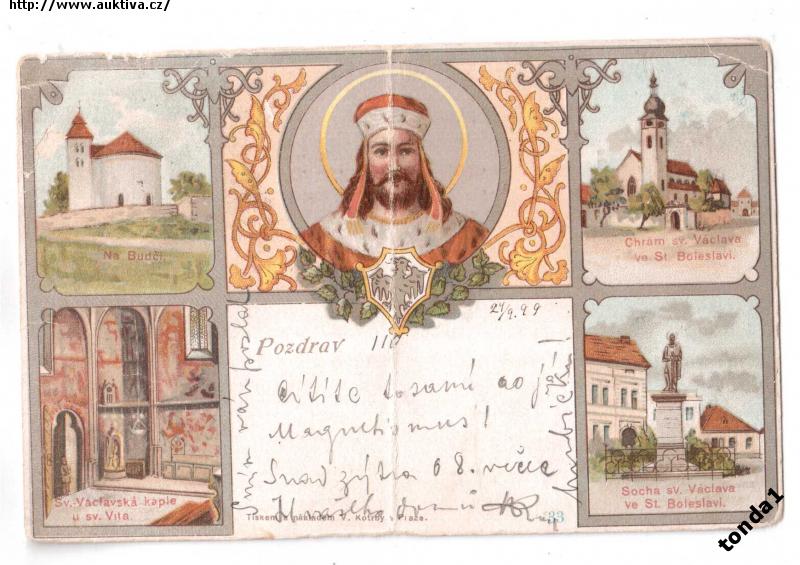 http://www.auktiva.cz/
Na Budči.
Chrám sv. Václava
ve St. Boleslavi.
27/9.99
Pozdrav
Cítíte to samé co já
Magnetismus!
Snad zýtra o 8. večer
Sv. Václavská kaple
u sv. Víta.
Socha sv. Václava
ve St. Boleslavi.
Tiskem a nákladem V. Kotrby v Praze.
33
tonda1